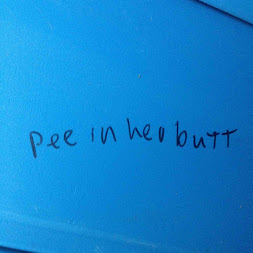 Pee in her butt